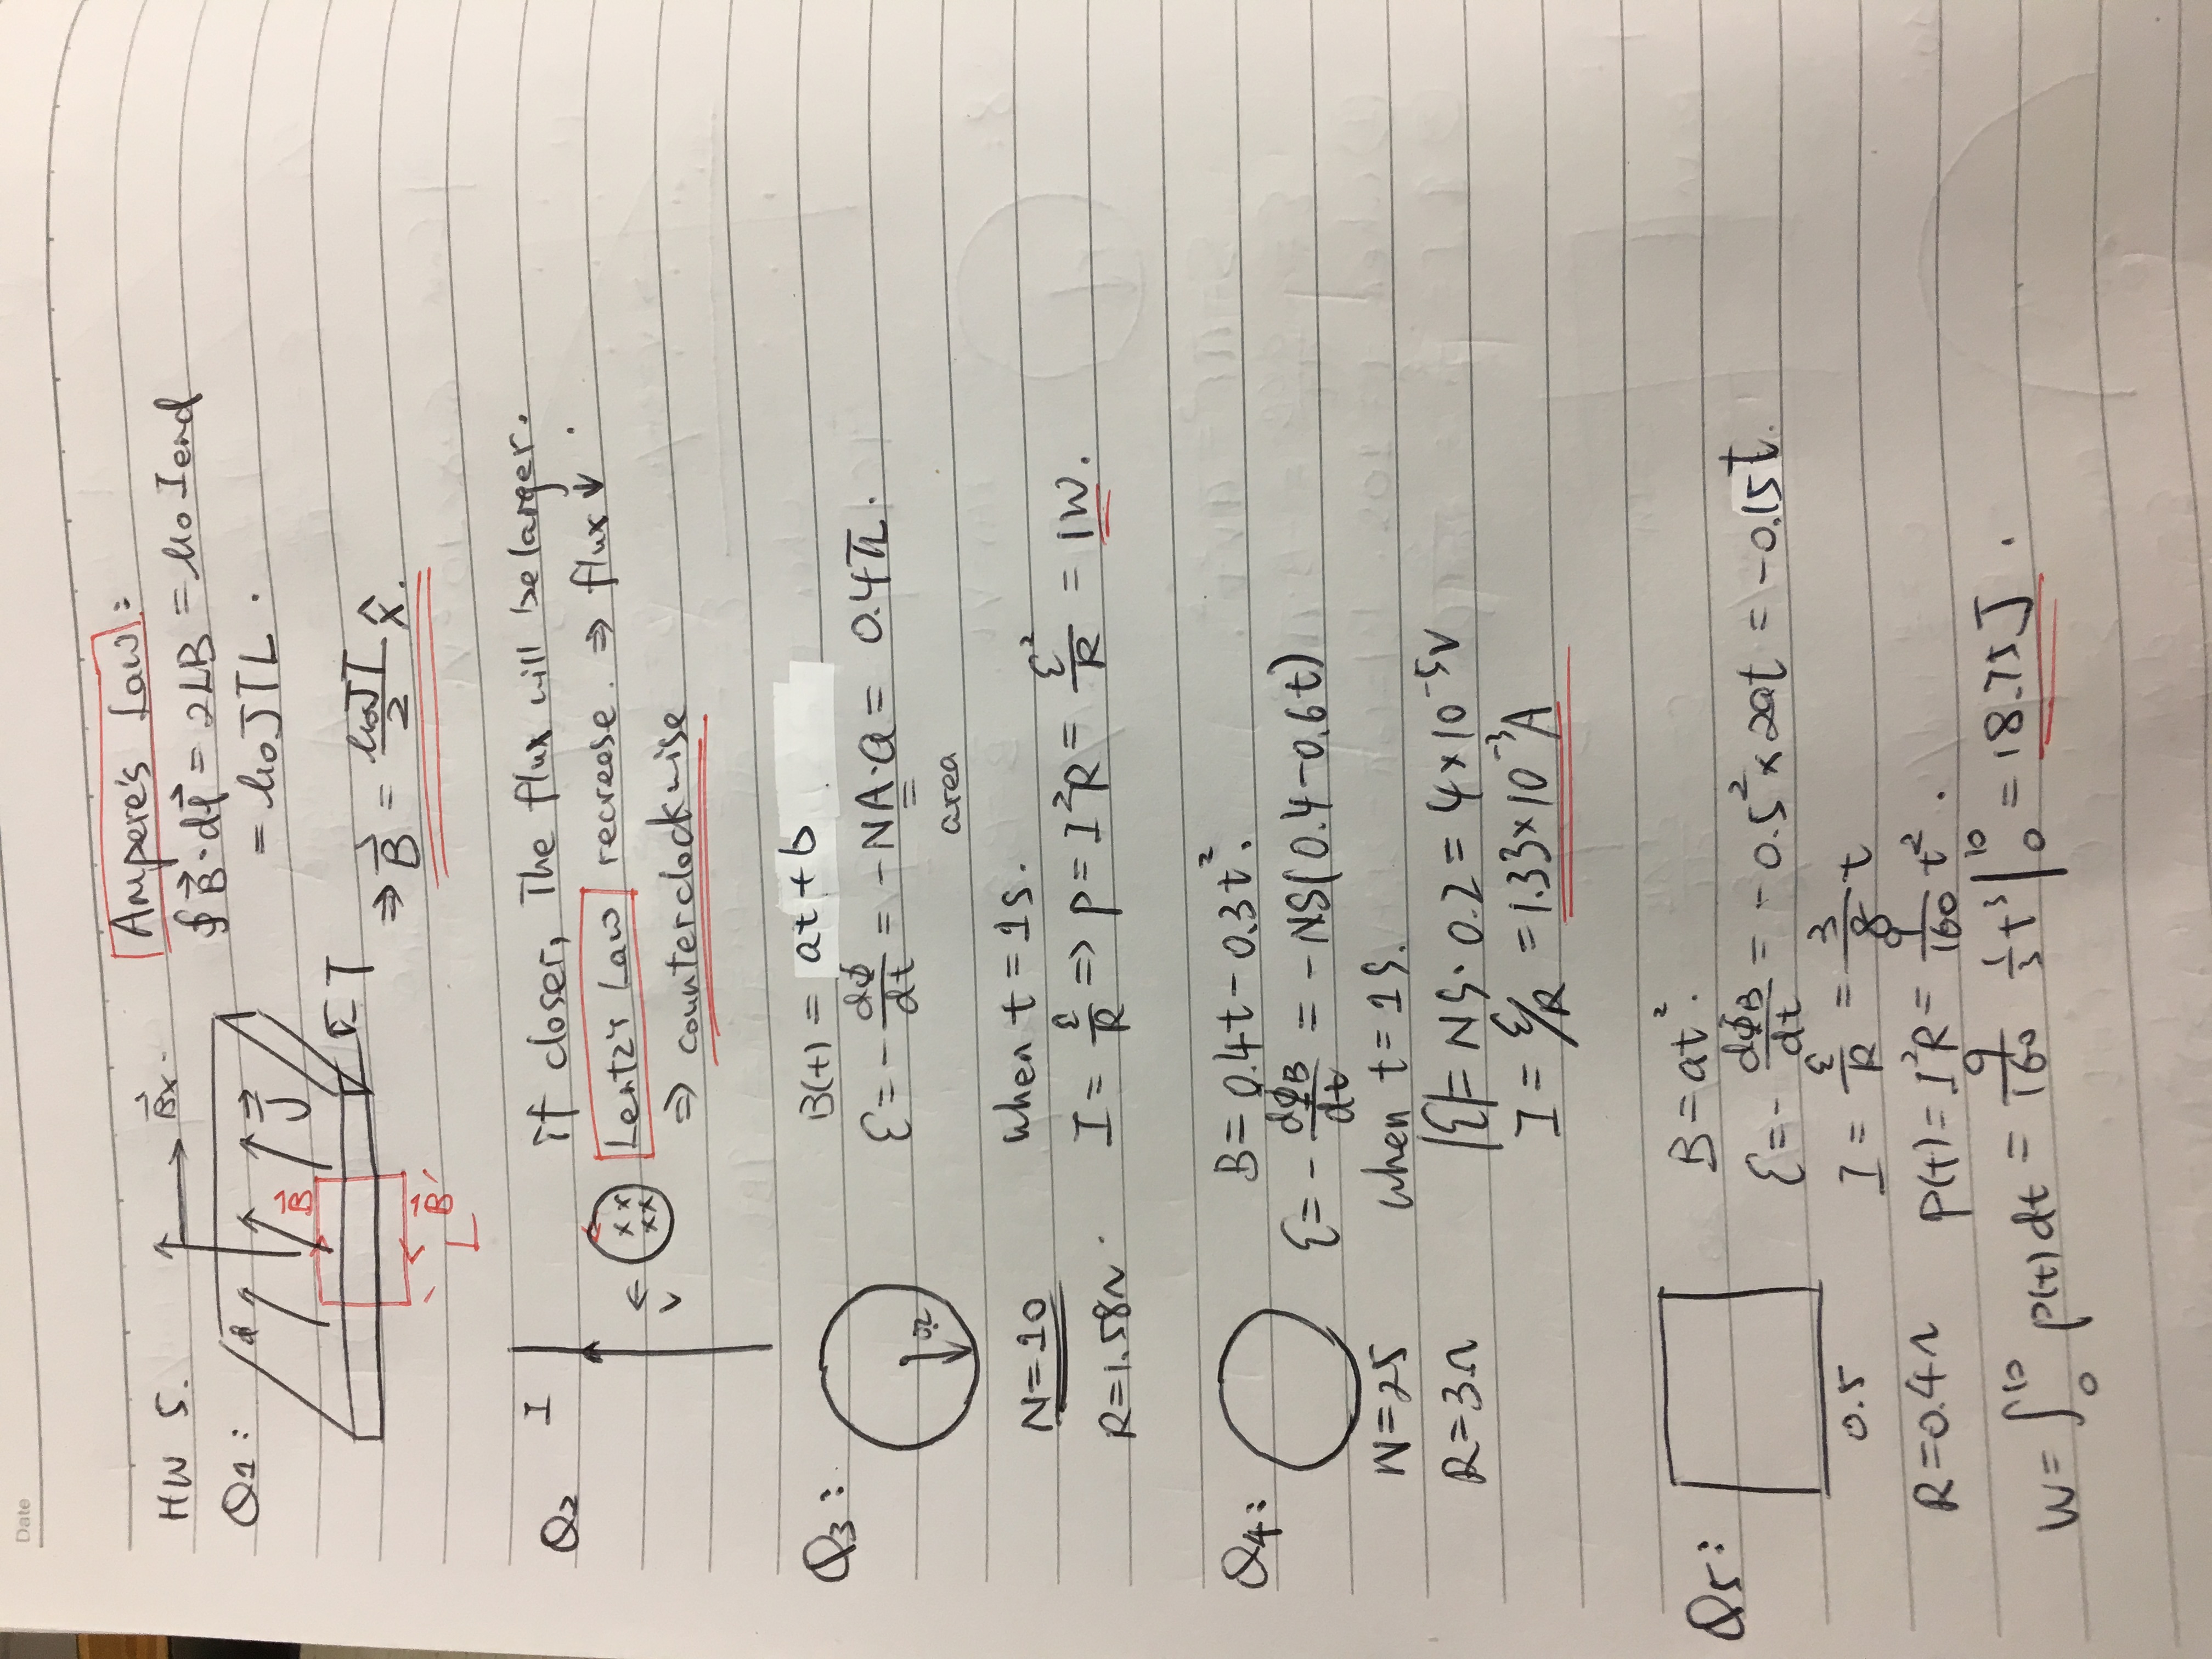 Date
HW 5.
Q1:
B⃗x
J⃗
B⃗
T
B⃗'
L
Ampere's Law:
∮B⃗·dl⃗ = 2LB = μ0 Iend
= μ0JTL.
⇒ B⃗ = μ0JT/2 x̂.
Q2
I
v
××
××
if closer, The flux will be larger.
Lentz's Law recreese. ⇒ flux↓
⇒ counterclockwise
Q3:
0.2
N=10
R=1.58Ω.
B(t) = at+b
ε = -dΦ/dt = -NA·a = 0.4π.
area
when t=1s.
I = ε/R ⇒ P = I²R = ε²/R = 1W.
Q4:
N=25
R=3Ω
B=0.4t-0.3t².
ε = -dΦB/dt = -NS(0.4-0.6t)
when t=1s.
|ε|= NS·0.2 = 4×10⁻⁵V
I = ε/R = 1.33×10⁻³A
Q5:
0.5
R=0.4Ω
B=at².
ε=-dΦB/dt = -0.5²×2at = -0.15t.
I = ε/R = 3/8 t
P(t)=I²R= 9/160 t².
W=∫₀¹⁰ P(t)dt = 9/160 1/3 t³|₀¹⁰ = 18.75J.